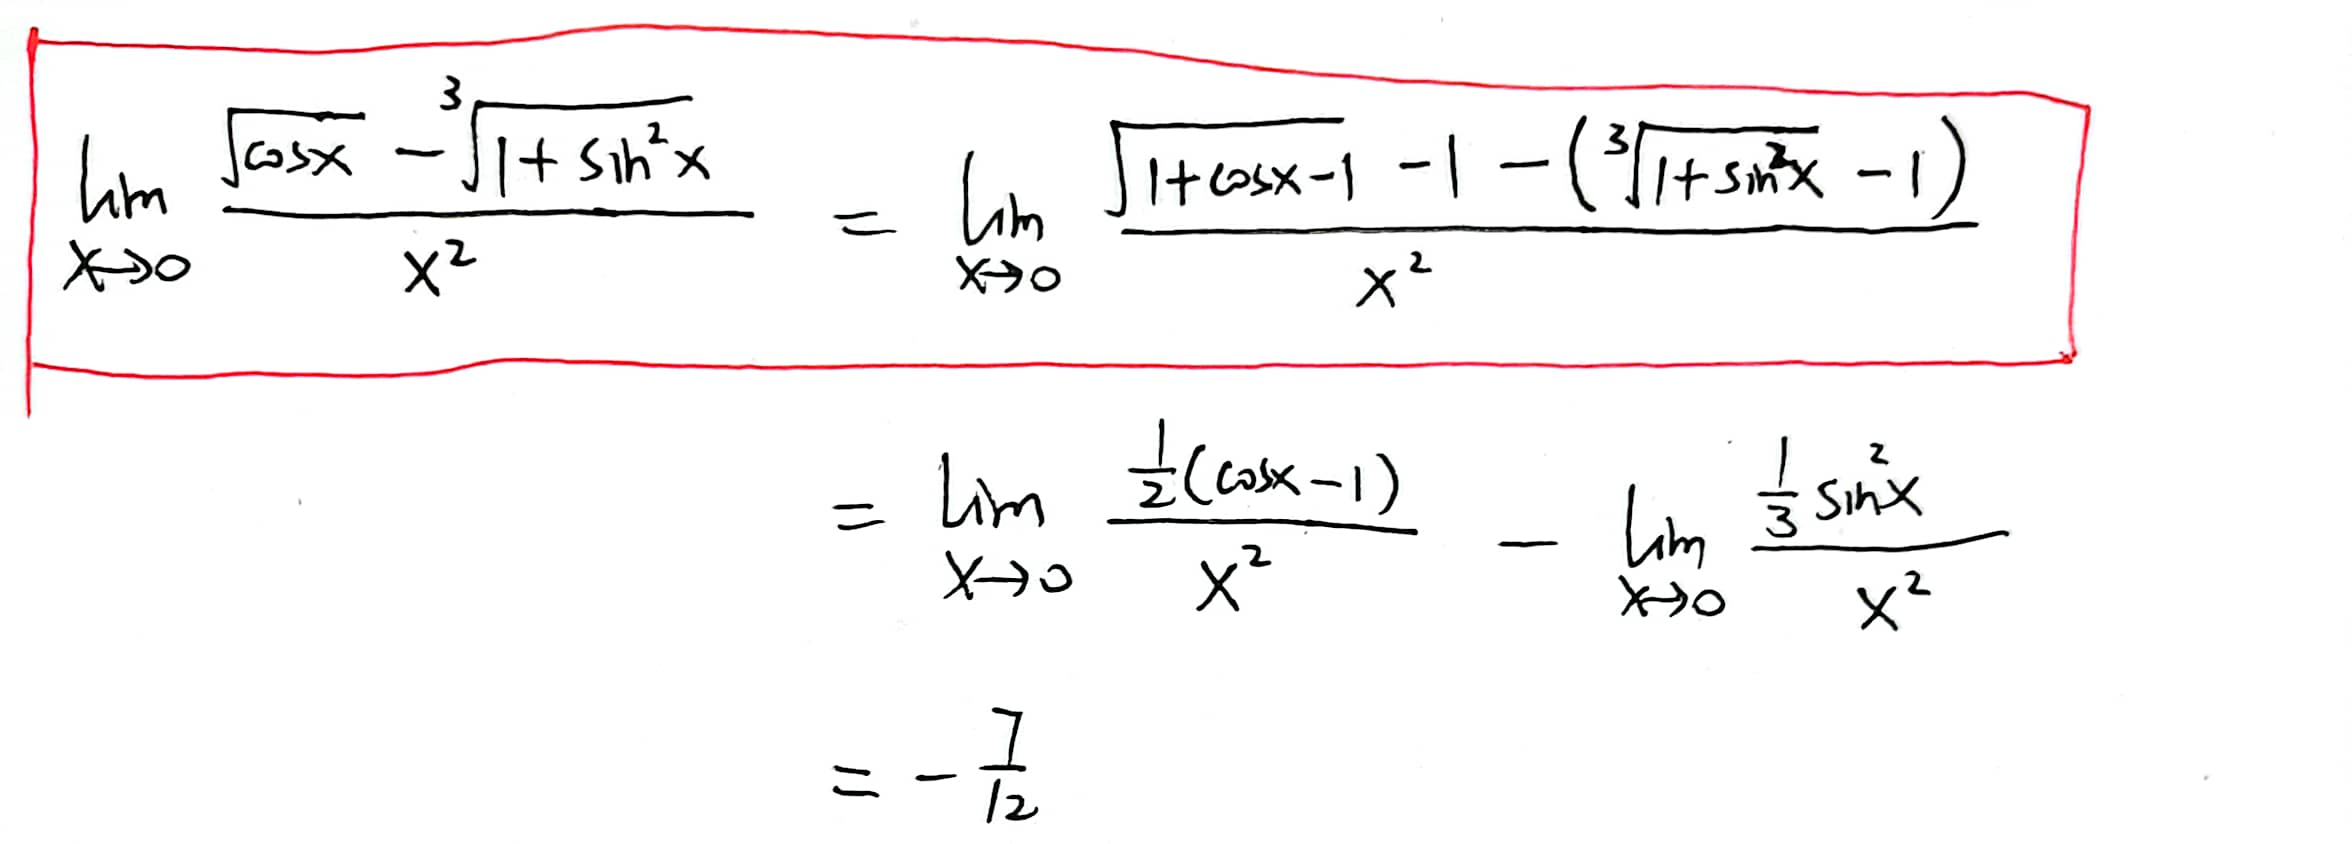 lim x→0 (√cosx - ³√1+sin²x) / x² = lim x→0 (√1+cosx-1 -1 -(³√1+sin²x -1)) / x²
= lim x→0 ½(cosx-1) / x² - lim x→0 ⅓ sin²x / x²
= - 7/12